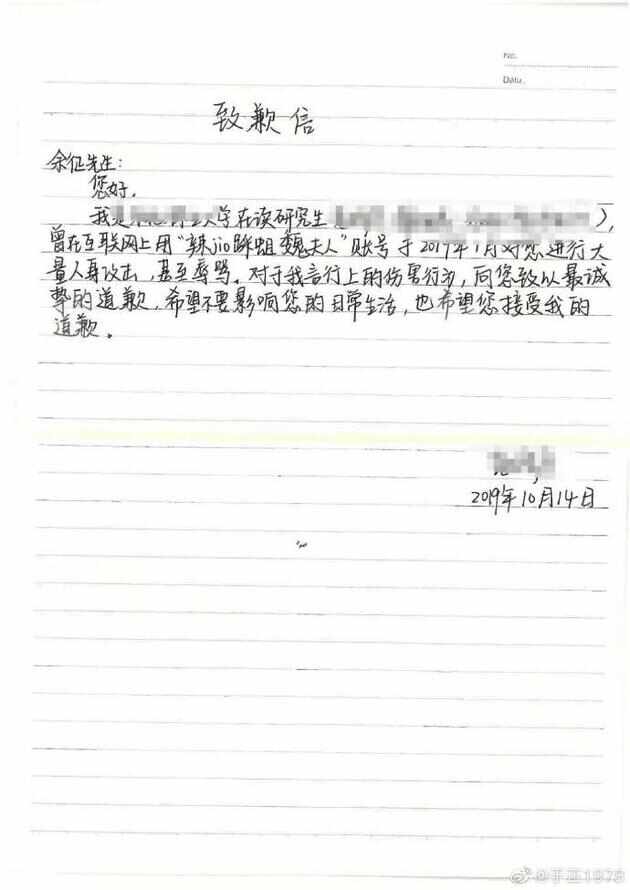 No.
Date.
致歉信
余征先生:
您好,
我是 大学在读研究生 ),
曾在互联网上用"辣jio 蛆魏夫人"账号于2019年1月对您进行大
量人身攻击,甚至辱骂。对于我言行上的伤害行为,向您致以最诚
挚的道歉,希望不要影响您的日常生活,也希望您接受我的
道歉。
2019年10月14日
@于正1978